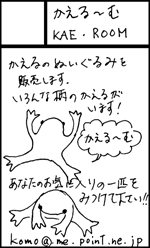 かえる～む
KAE・ROOM
かえるのぬいぐるみを
販売します。
いろんな柄のかえるが
います!
かえる～む
あなたのお気に入りの一匹を
みつけて下さい!!
komo@me.point.ne.jp